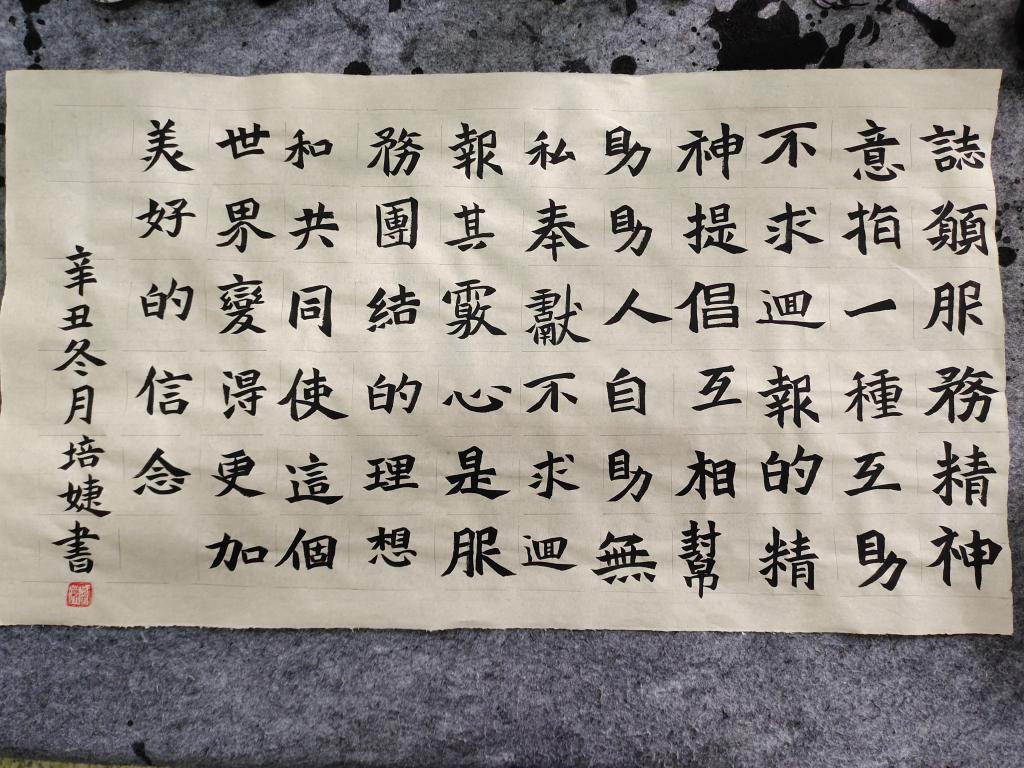 誌願服務精神
意指一種互助
不求迴報的精
神提倡互相幫
助助人自助無
私奉獻不求迴
報其覈心是服
務團結的理想
和共同使這個
世界變得更加
美好的信念
辛丑冬月培婕書